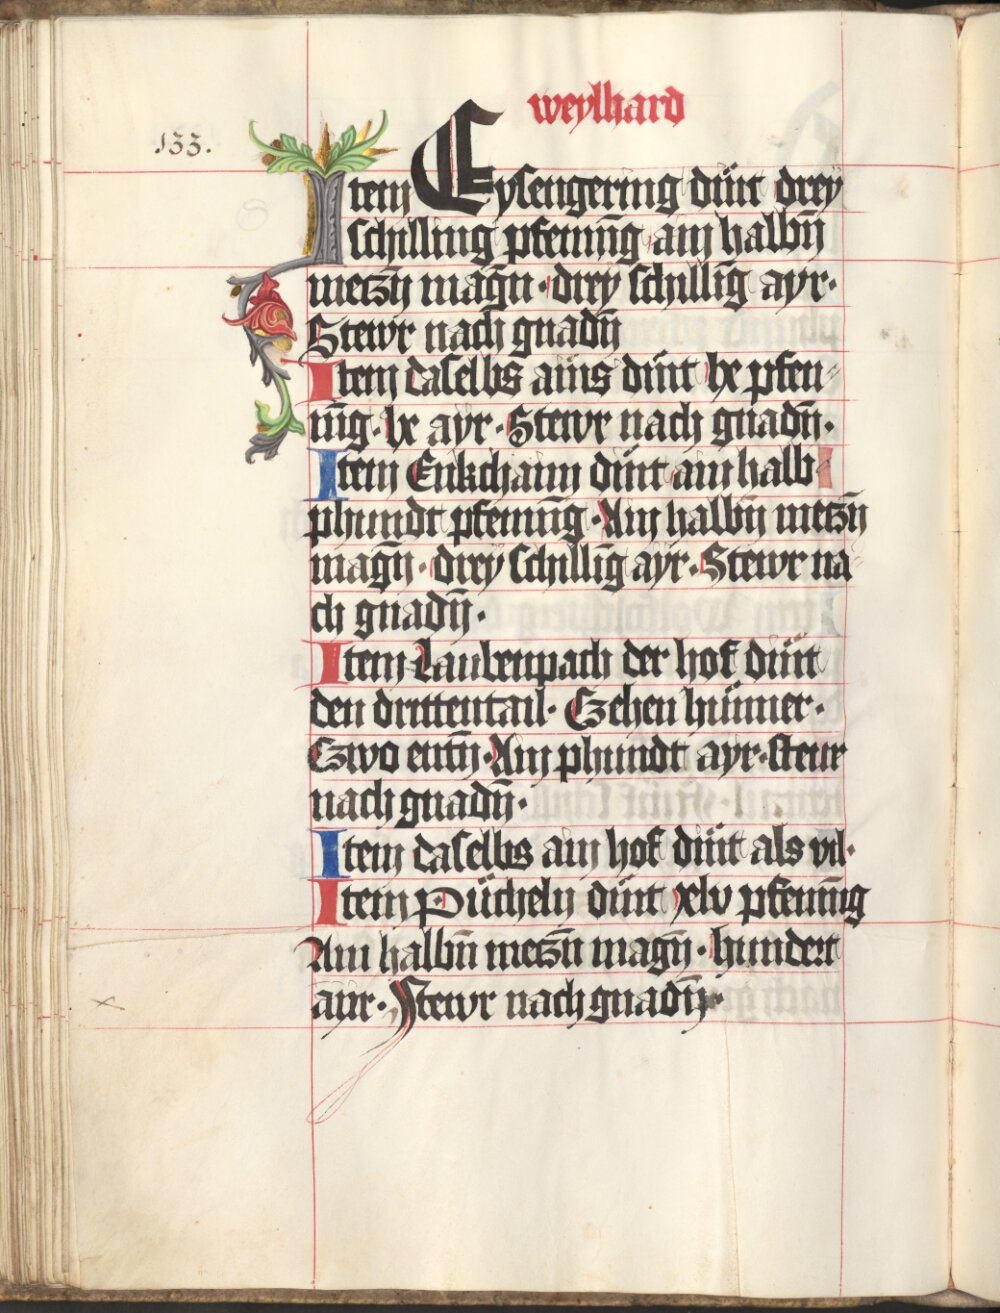 weylhard
133.
Item Eysengering dint drey
schilling pfenīg ain halbn̄
metzn̄ magn̄ · drey schillīg ayr ·
Stewr nach gnadn̄
Item daselbs ains dint lx pfen
nīg · lx ayr · Stewr nach gnadn̄ ·
Item Enkchaim dint ain halb
phundt pfennīg · Ain halbn̄ metzn̄
magn̄ · drey schillīg ayr · Stewr na
ch gnadn̄ ·
Item Laubenpach der hof dint
den drittentail · Czehen hünner ·
Czwo entn̄ · Ain phundt ayr · steur
nach gnadn̄ ·
Item daselbs ain hof dint als vil ·
Item Pücheln dint xlv pfennīg
Ain halbn̄ metzn̄ magn̄ · hundert
ayr · Stewr nach gnadn̄ ·